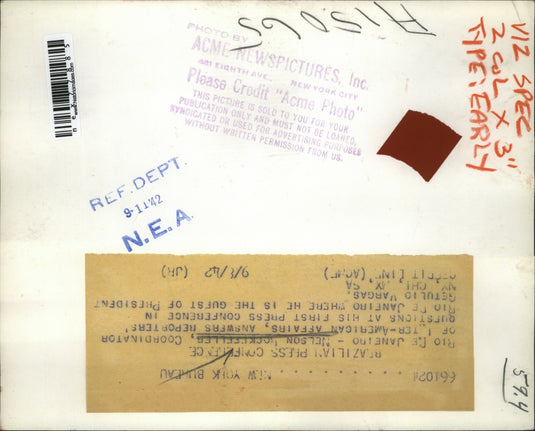 A15065
PHOTO BY
ACME NEWSPICTURES, Inc.
461 EIGHTH AVE., NEW YORK CITY
Please Credit "Acme Photo"
THIS PICTURE IS SOLD TO YOU FOR YOUR
PUBLICATION ONLY AND MUST NOT BE LOANED,
SYNDICATED OR USED FOR ADVERTISING PURPOSES
WITHOUT WRITTEN PERMISSION FROM US.
VIZ SPEC
2 COL X 3"
TYPE: EARLY
REF. DEPT.
9-11-42
N.E.A.
NEW YORK BUREAU
BRAZILIAN PRESS CONFERENCE
RIO DE JANEIRO -- NELSON ROCKEFELLER, COORDINATOR
OF INTER-AMERICAN AFFAIRS, ANSWERS REPORTERS'
QUESTIONS AT HIS FIRST PRESS CONFERENCE IN
RIO DE JANEIRO WHERE HE IS THE GUEST OF PRESIDENT
GETULIO VARGAS.
NY CHI SA
CREDIT LINE (ACME) 9/8/42 (JR)